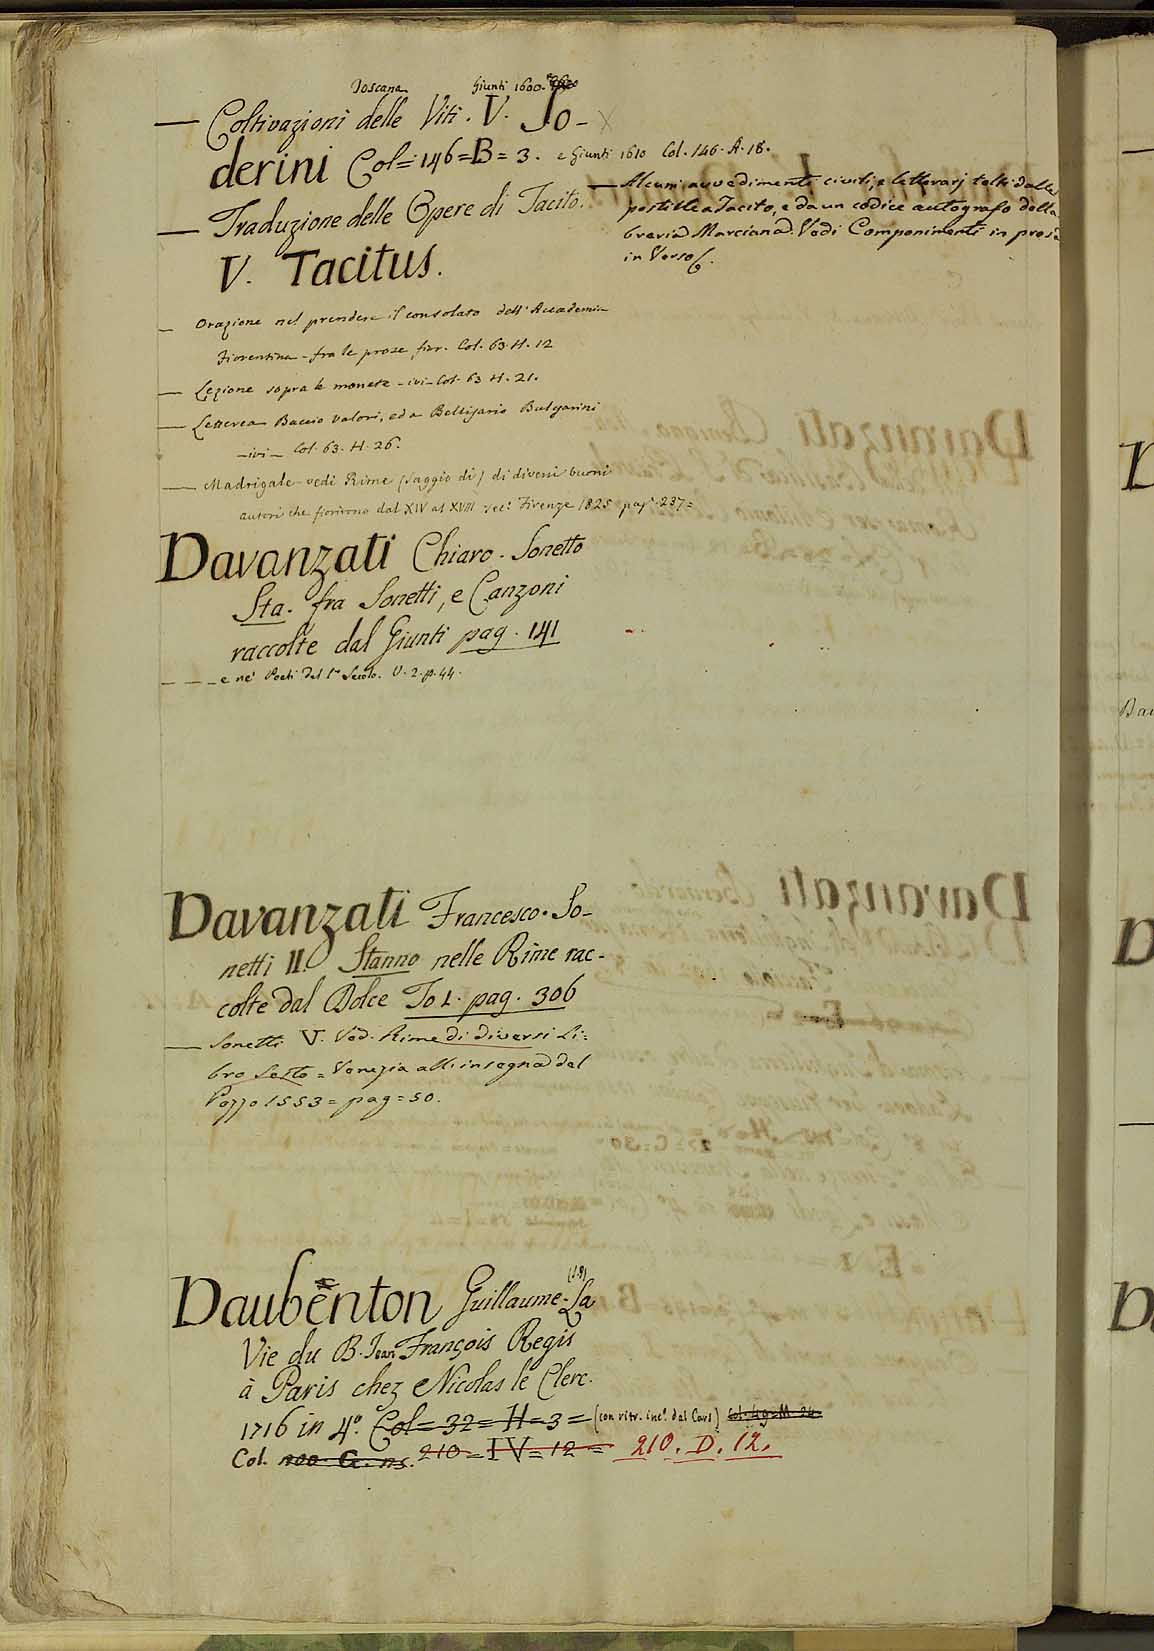 Toscana Giunti 1600.
— Coltivazioni delle Viti. V. So-
derini Col= 146=B=3. e Giunti 1610 Col. 146. A. 18.
— Alcuni avvedimenti civili, e letterarj tolti dalle
postille a Tacito, e da un codice autografo della
breria Marciana. Vedi Componimenti in prosa
in Verso
— Traduzione delle Opere di Tacito.
V. Tacitus.
— Orazione nel prendere il consolato dell'Accademia
Fiorentina - fra le prose fior. Col. 63. H. 12
— Lezione sopra le monete - ivi - Col. 63 H. 21.
— Lettere a Baccio Valori, ed a Bellisario Bulgarini
- ivi - Col. 63. H. 26.
— Madrigale - vedi Rime (Saggio di) di diversi buoni
autori che fiorirono dal XIV al XVIII sec.º Firenze 1825 pag.ª 237=
Davanzati Chiaro. Sonetto
Sta. fra Sonetti, e Canzoni
raccolte dal Giunti pag. 141
— — — e ne' Poeti del 1º Secolo. V. 2. p. 44.
Davanzati Francesco. So-
netti II. Stanno nelle Rime rac-
colte dal Dolce To 1. pag. 306
— Sonetti V. Ved. Rime di diversi Li=
bro Sesto = Venezia all'insegna del
Pozzo 1553 = pag = 50.
Daubenton Guillaume - La
Vie du B. Jean François Regis
à Paris chez Nicolas le Clerc.
1716 in 4º. Col= 32= H=3= (con ritr. inc.º dal Cars)
Col. 210=IV=12= 210. D. 12.